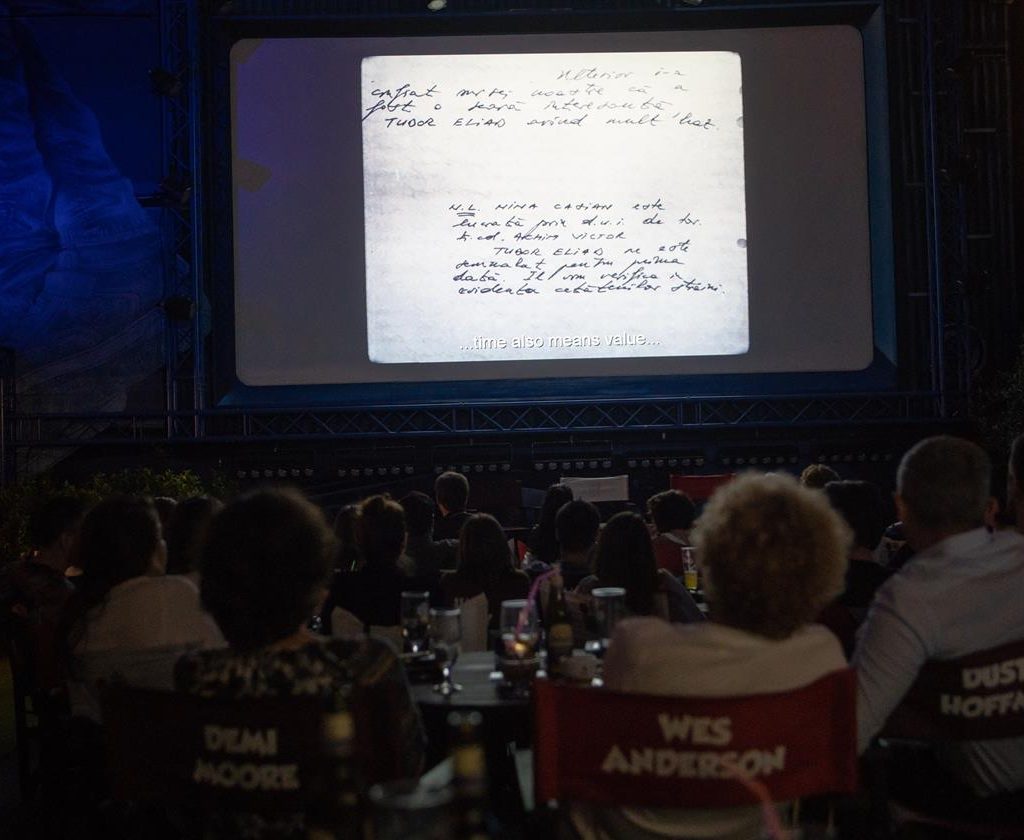 Ulterior i-a
confiat surse noastre că a
fost o seară interesantă
TUDOR ELIAD avînd mult haz.
N.L. NINA CASIAN este
lucrată prin d.u.i. de tov.
ACHIM VICTOR
TUDOR ELIAD ne este
semnalat pentru prima
dată. Il vom verifica in
evidenta cetătenilor străini.
...time also means value...
DEMI
MOORE
WES
ANDERSON
DUST
HOFF